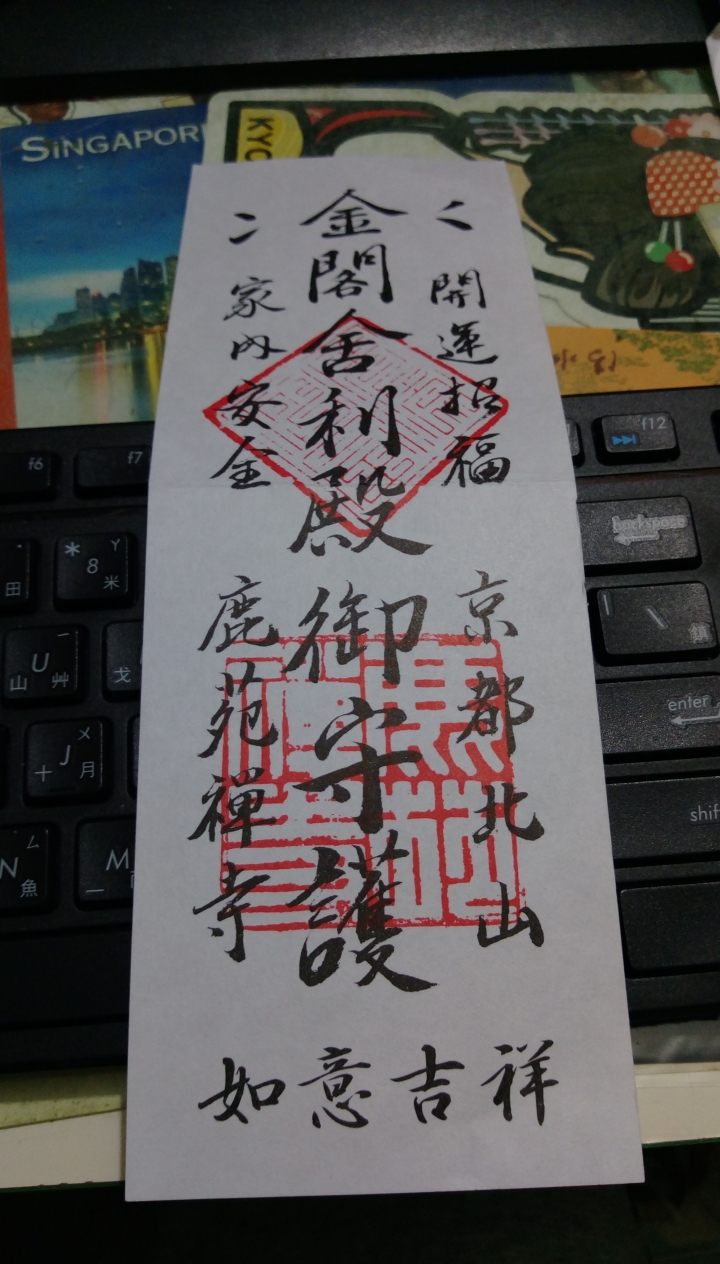 SINGAPOR
KYO
開運招福
金閣舍利殿
家内安全
京都北山
御守護
鹿苑禅寺
如意吉祥
f6
f7
f12
Backspace
enter
shif
* 8 Y 米
田
U 山 艸
J 十 月
N 魚
M 一
戈